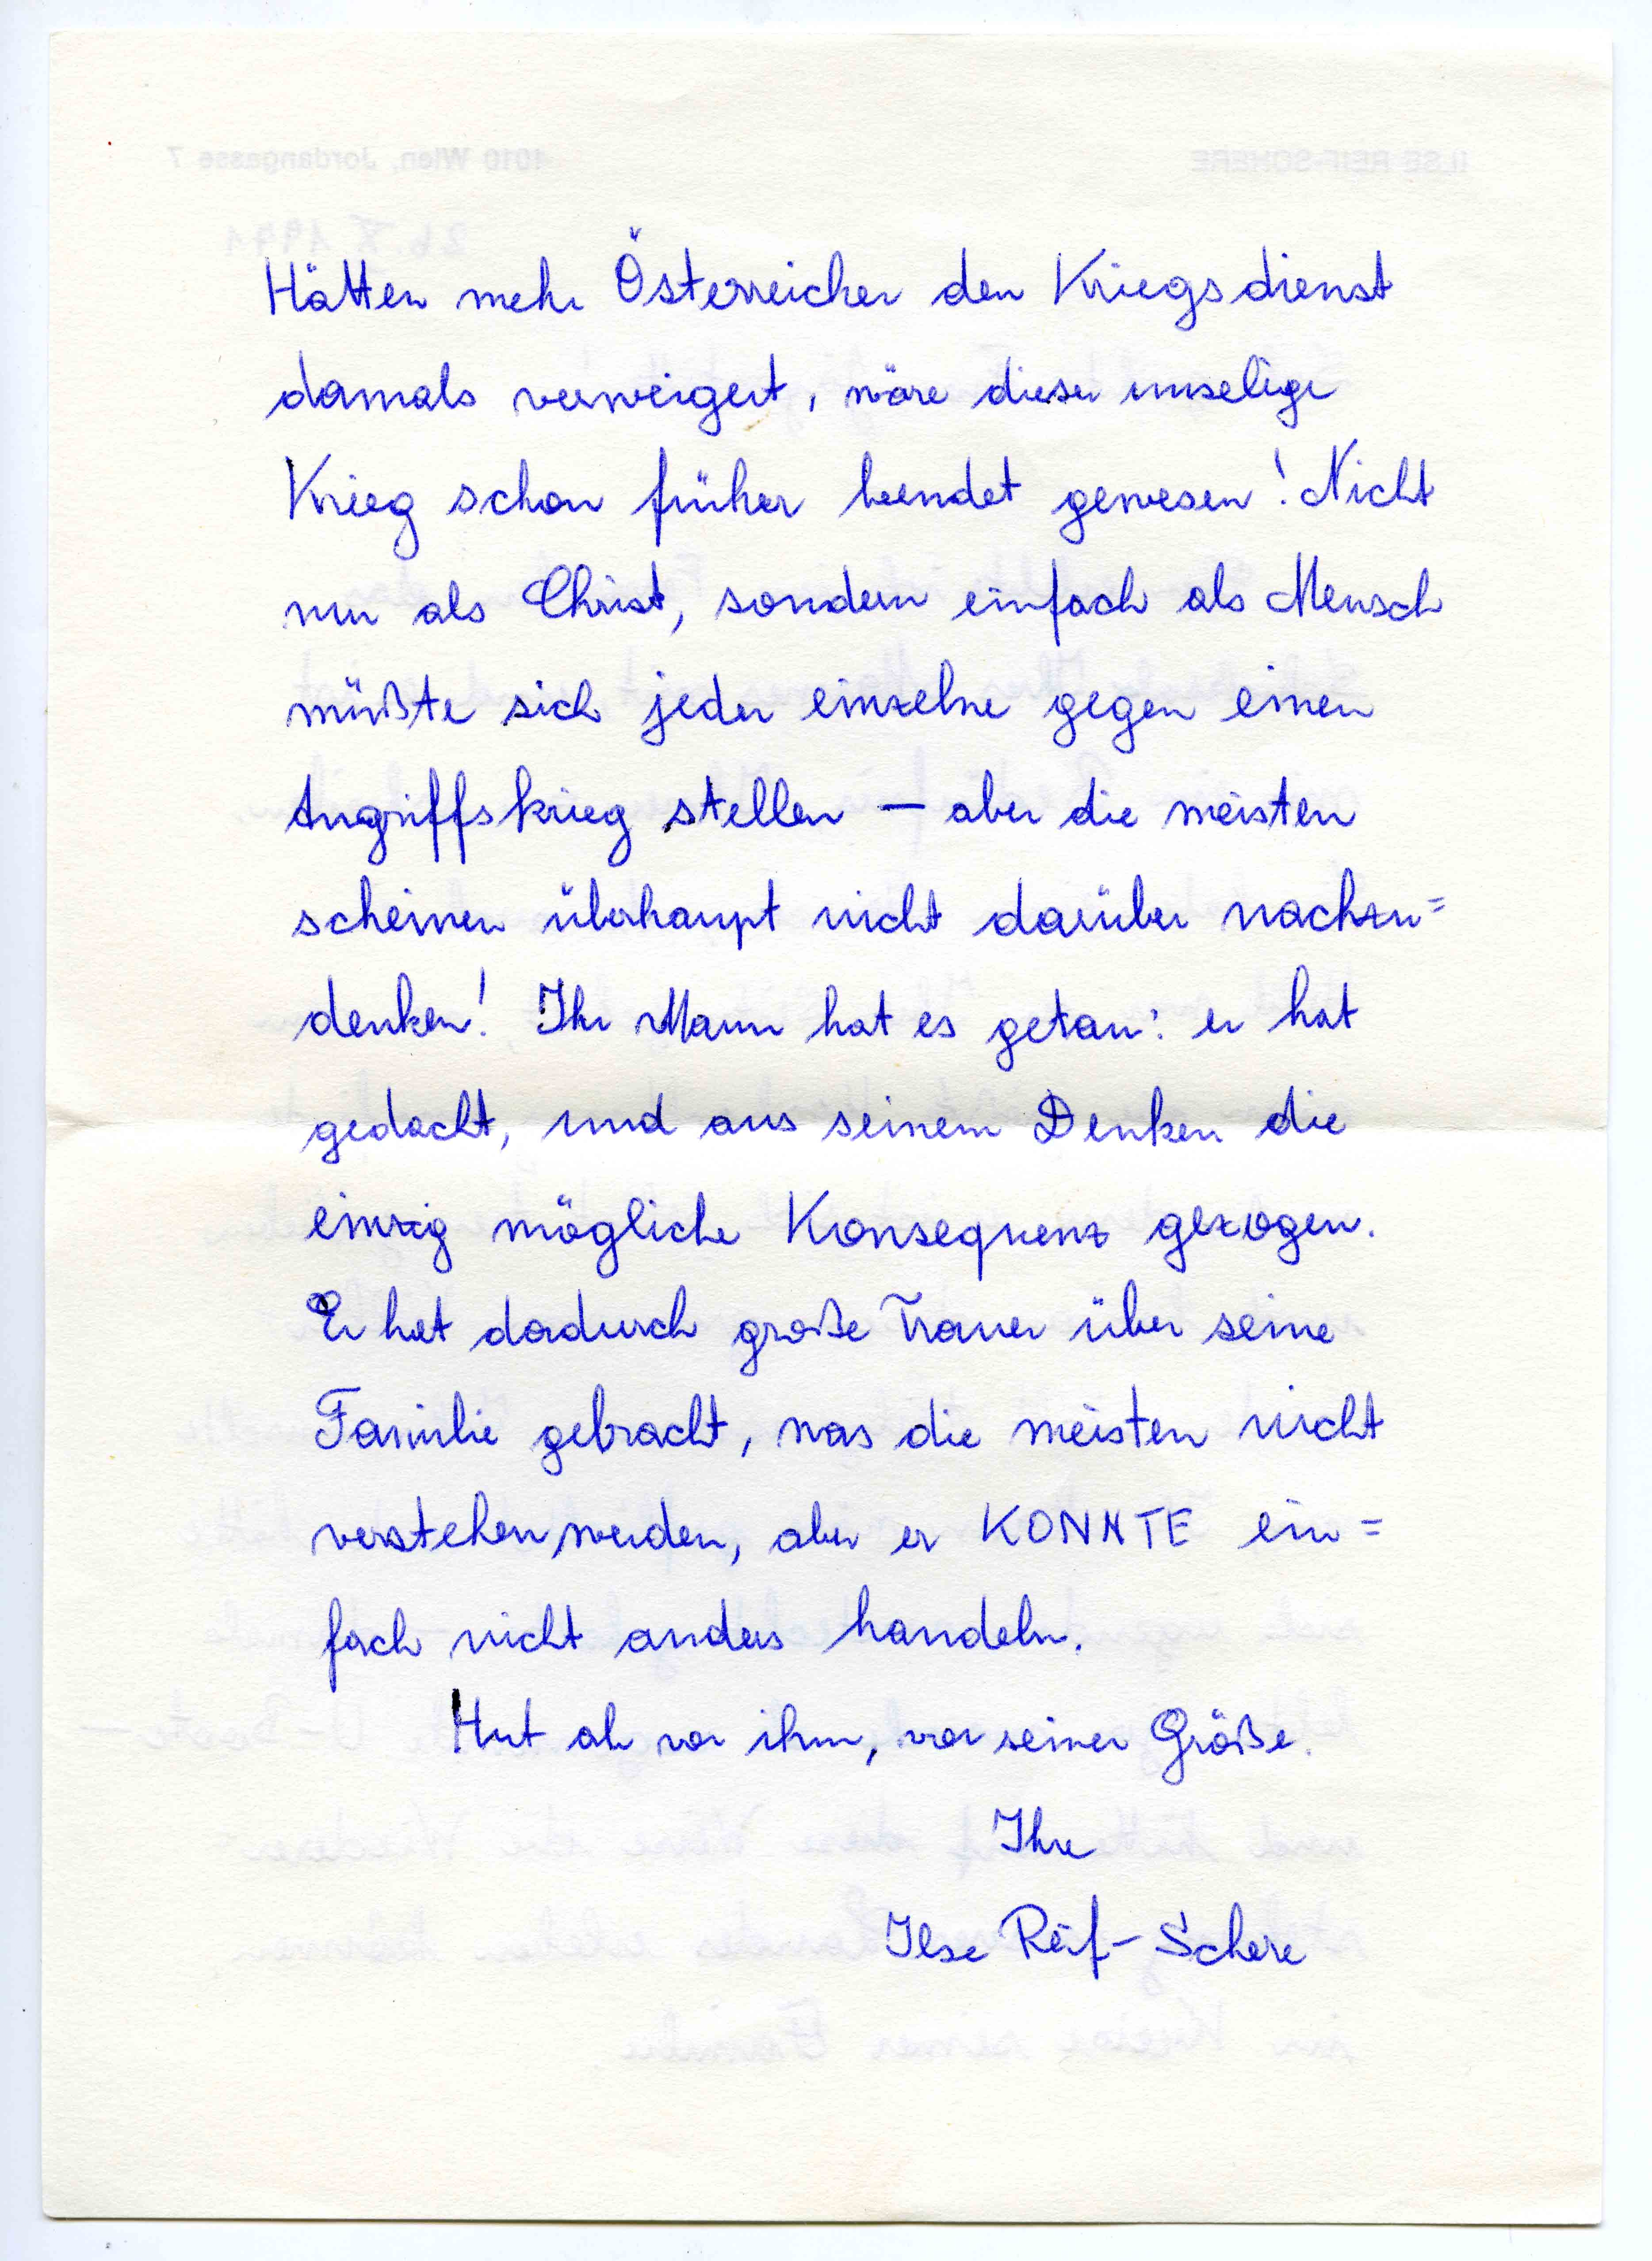 Hätten mehr Österreicher den Kriegsdienst
damals verweigert, wäre dieser unselige
Krieg schon früher beendet gewesen! Nicht
nur als Christ, sondern einfach als Mensch
müßte sich jeder einzelne gegen einen
Angriffskrieg stellen – aber die meisten
scheinen überhaupt nicht darüber nachzu=
denken! Ihr Mann hat es getan: er hat
gedacht, und aus seinem Denken die
einzig mögliche Konsequenz gezogen.
Er hat dadurch große Trauer über seine
Familie gebracht, was die meisten nicht
verstehen werden, aber er KONNTE ein=
fach nicht anders handeln.
Hut ab vor ihm, vor seiner Größe.
Ihre
Ilse Reif-Schere